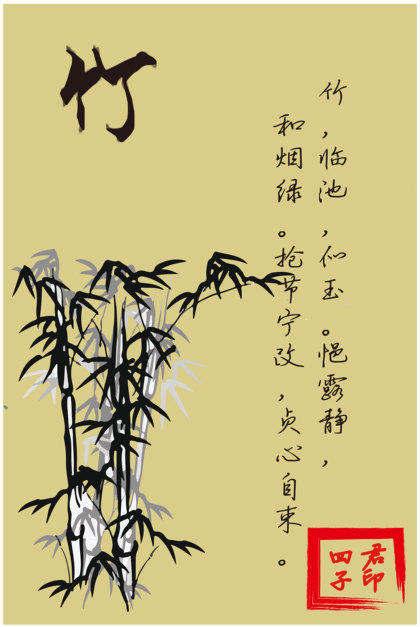 竹
竹，临池，似玉。悒露静，
和烟绿。抢节宁改，贞心自束。
四君
子印